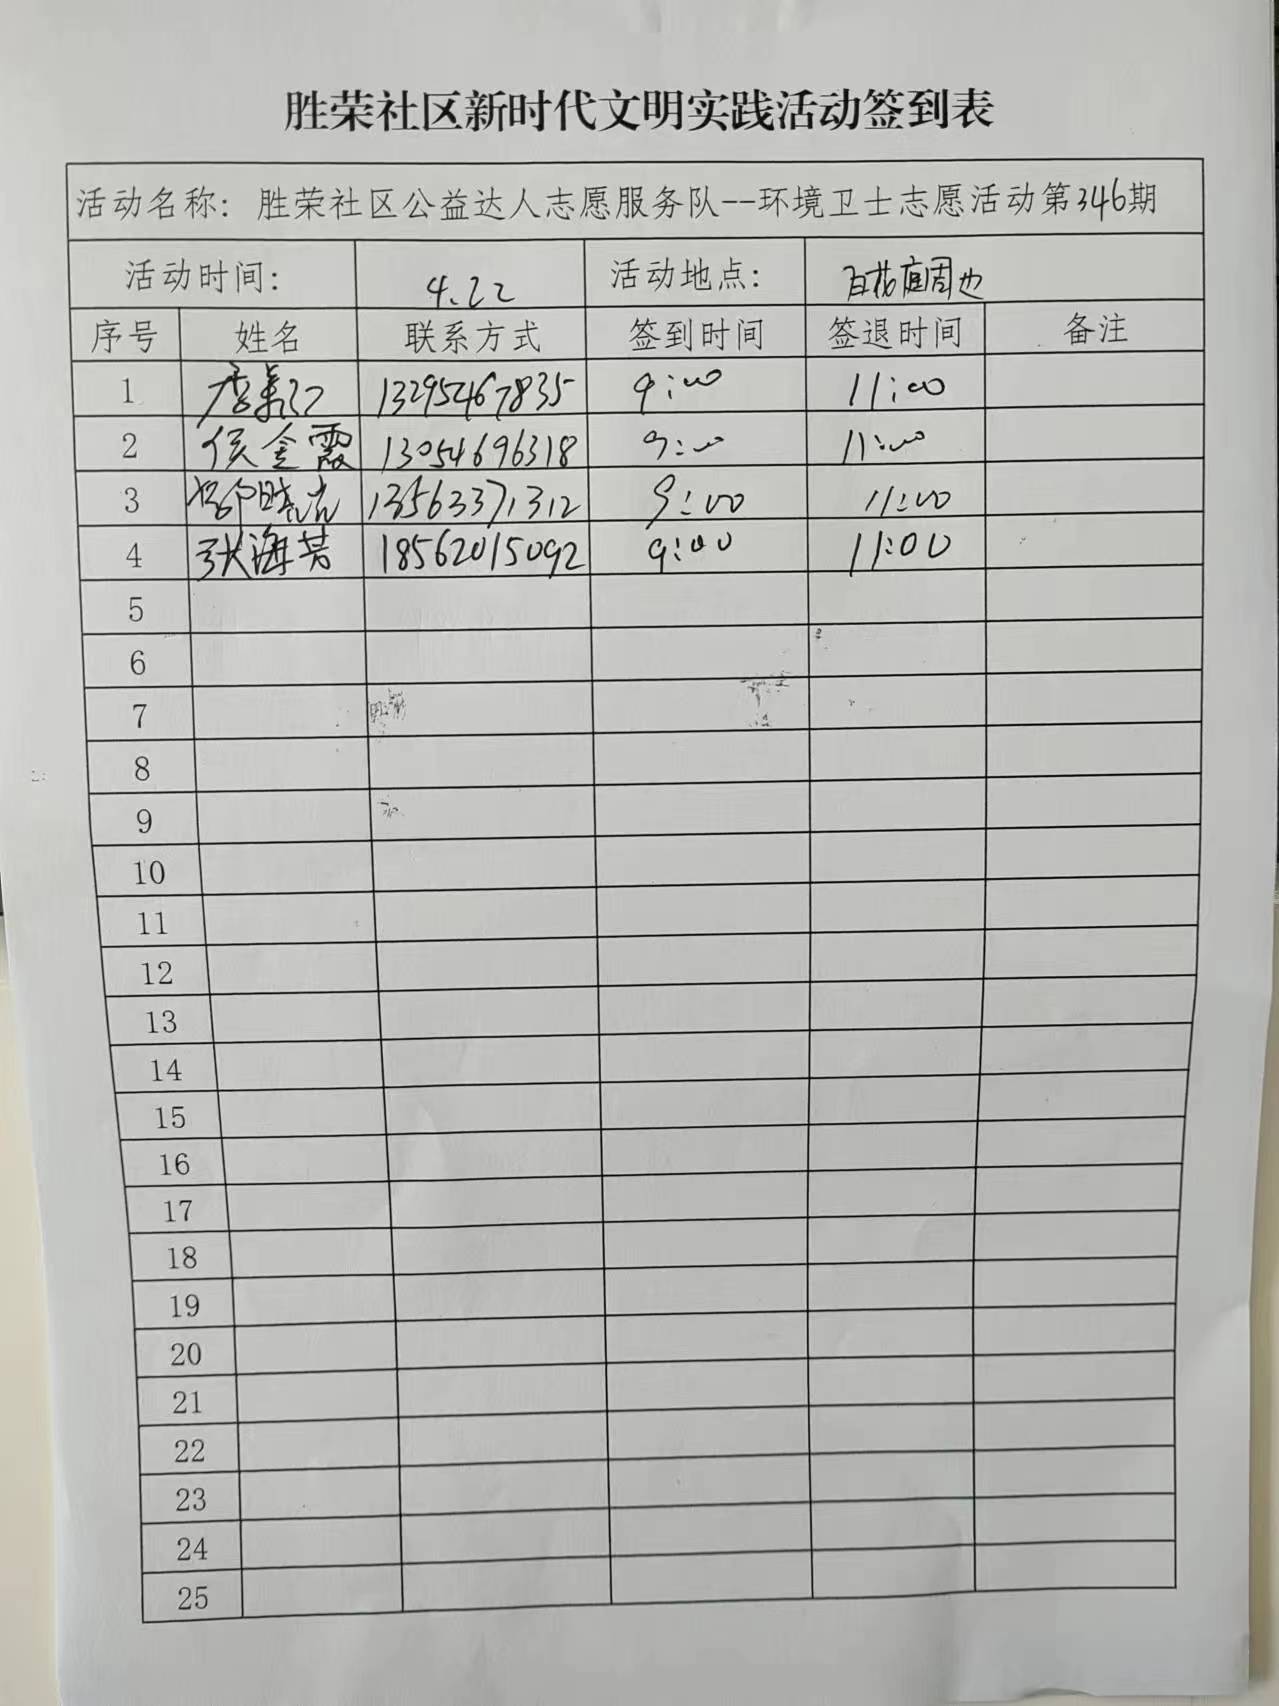 胜荣社区新时代文明实践活动签到表
活动名称：胜荣社区公益达人志愿服务队--环境卫士志愿活动第346期
活动时间： 4.22 活动地点： 百花庭周边
序号 姓名 联系方式 签到时间 签退时间 备注
1 13295467835 9:00 11:00
2 侯金霞 13054696318 9:00 11:00
3 13563371312 9:00 11:00
4 张海芳 18562015092 9:00 11:00
5
6
7
8
9
10
11
12
13
14
15
16
17
18
19
20
21
22
23
24
25